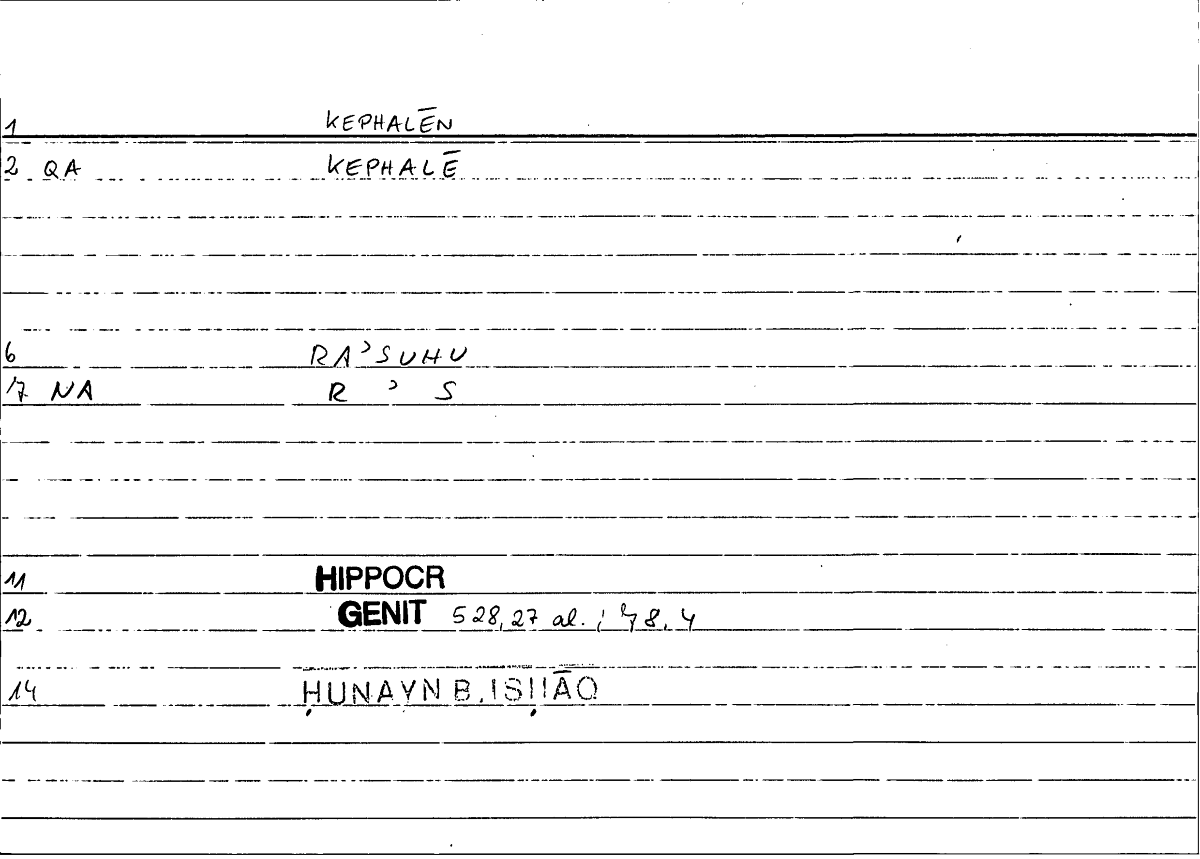 1 KEPHALĒN
2 QA KEPHALĒ
6 RAʾSUHU
7 NA R ʾ S
11 HIPPOCR
12 GENIT 528,27 al. ; 78,4
14 ḤUNAYN B. ISḤĀQ